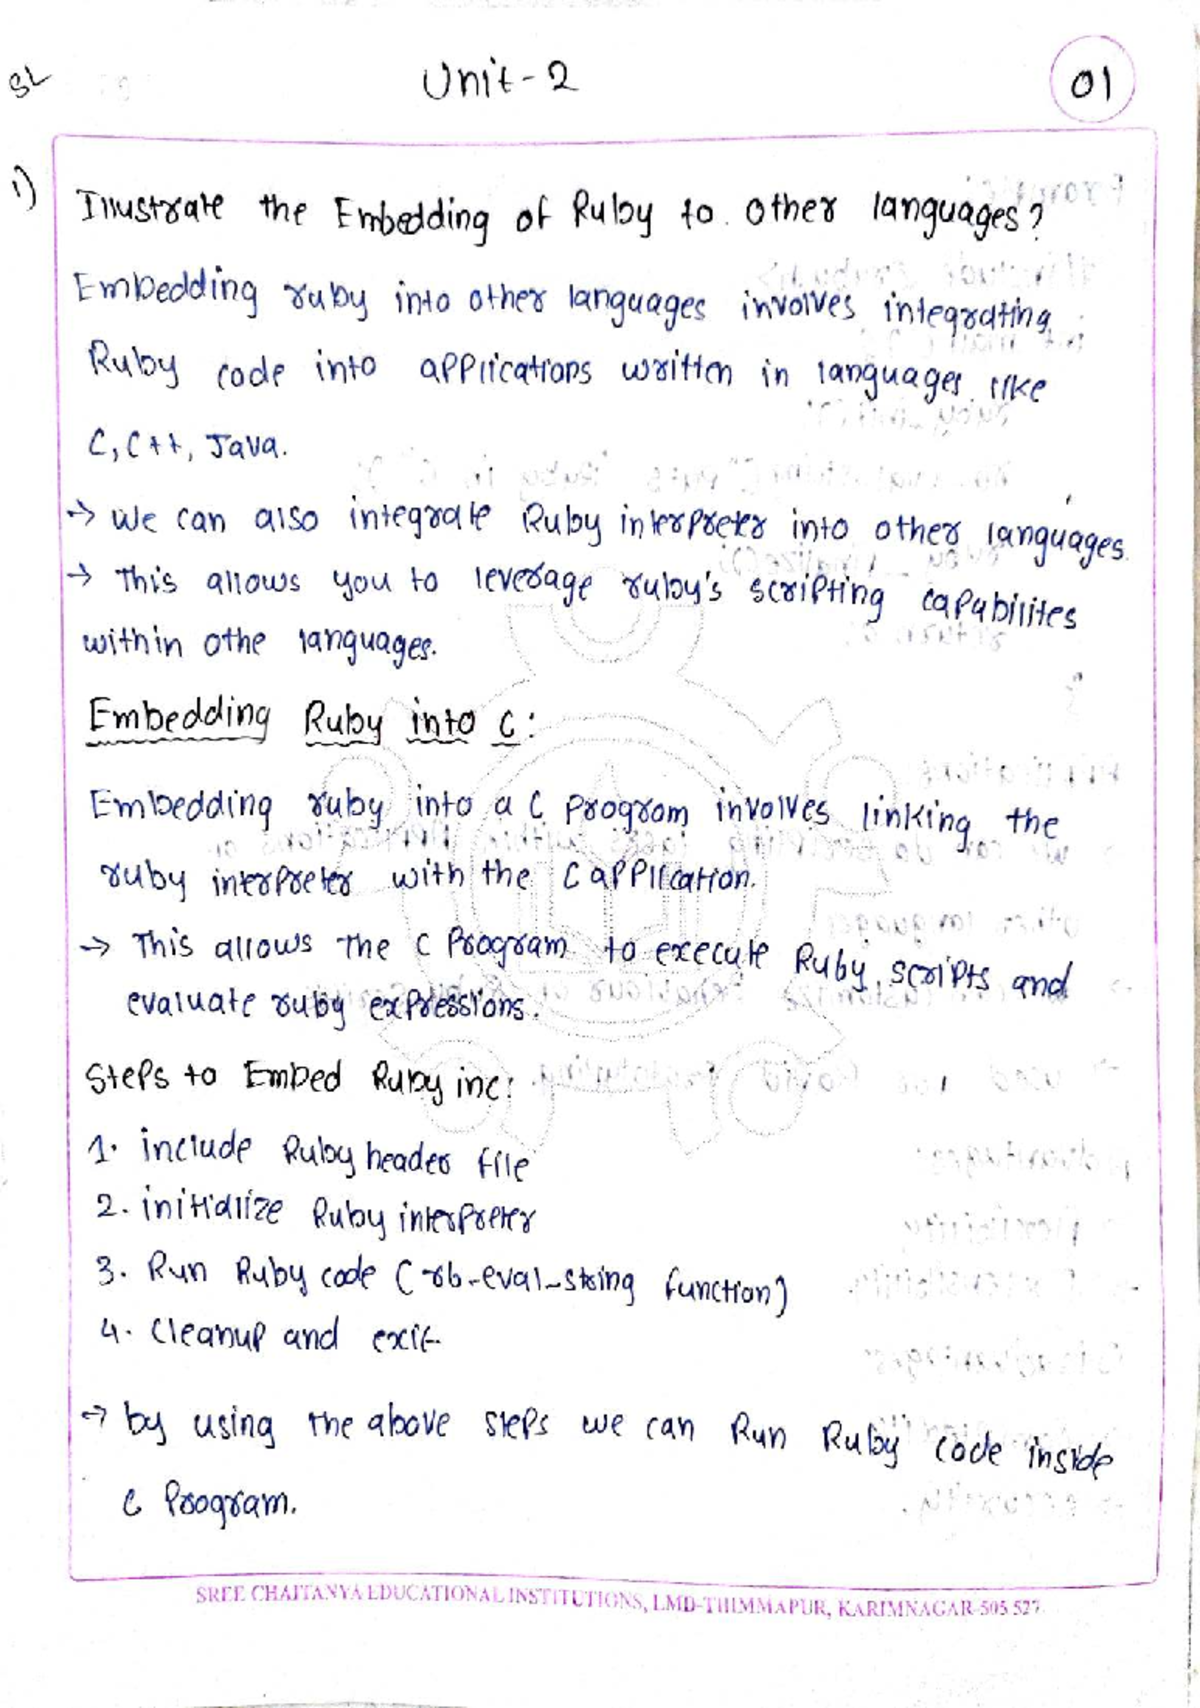 SL
Unit-2
01
1)
Illustrate the Embedding of Ruby to other languages?
Embedding ruby into other languages involves integrating
Ruby code into applications written in languages like
C, C++, Java.
→ we can also integrate Ruby interpreter into other languages.
→ This allows you to leverage ruby's scripting capabilites
within othe languages.
Embedding Ruby into C:
Embedding ruby into a C program involves linking the
ruby interpreter with the C application.
→ This allows the C program to execute Ruby scripts and
evaluate ruby expressions.
Steps to Embed Ruby in c:
1. include Ruby header file
2. initialize Ruby interpreter
3. Run Ruby code (rb-eval-string function)
4. cleanup and exit
→ by using the above steps we can Run Ruby code inside
C Program.
SREE CHAITANYA EDUCATIONAL INSTITUTIONS, LMD-THIMMAPUR, KARIMNAGAR-505 527.